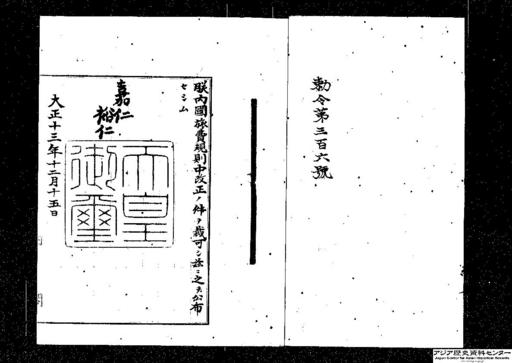 勅令第三百六號
朕內國旅費規則中改正ノ件ヲ裁可シ茲ニ之ヲ公布
セシム
嘉仁
裕仁
天皇
御璽
大正十三年十二月十五日
アジア歴史資料センター
Japan Center for Asian Historical Records